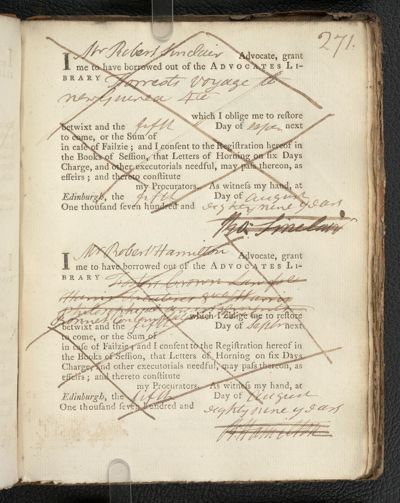 271.
I Mr Robert Sinclair Advocate, grant
me to have borrowed out of the ADVOCATES LI-
BRARY Forrests Voyage to
new guinea 4to
which I oblige me to reſtore
betwixt and the fifth Day of Sepr next
to come, or the Sum of
in caſe of Failzie; and I conſent to the Regiſtration hereof in
the Books of Seſſion, that Letters of Horning on ſix Days
Charge, and other executorials needful, may paſs thereon, as
effeirs; and thereto conſtitute
my Procurators. As witneſs my hand, at
Edinburgh, the fifth Day of August
One thouſand ſeven hundred and eighty nine years
Robt Sinclair
I Mr Robert Hamilton Advocate, grant
me to have borrowed out of the ADVOCATES LI-
BRARY
which I oblige me to reſtore
betwixt and the fifth Day of Sepr next
to come, or the Sum of
in caſe of Failzie; and I conſent to the Regiſtration hereof in
the Books of Seſſion, that Letters of Horning on ſix Days
Charge, and other executorials needful, may paſs thereon, as
effeirs; and thereto conſtitute
my Procurators. As witneſs my hand, at
Edinburgh, the fifth Day of August
One thouſand ſeven hundred and eighty nine years
R Hamilton